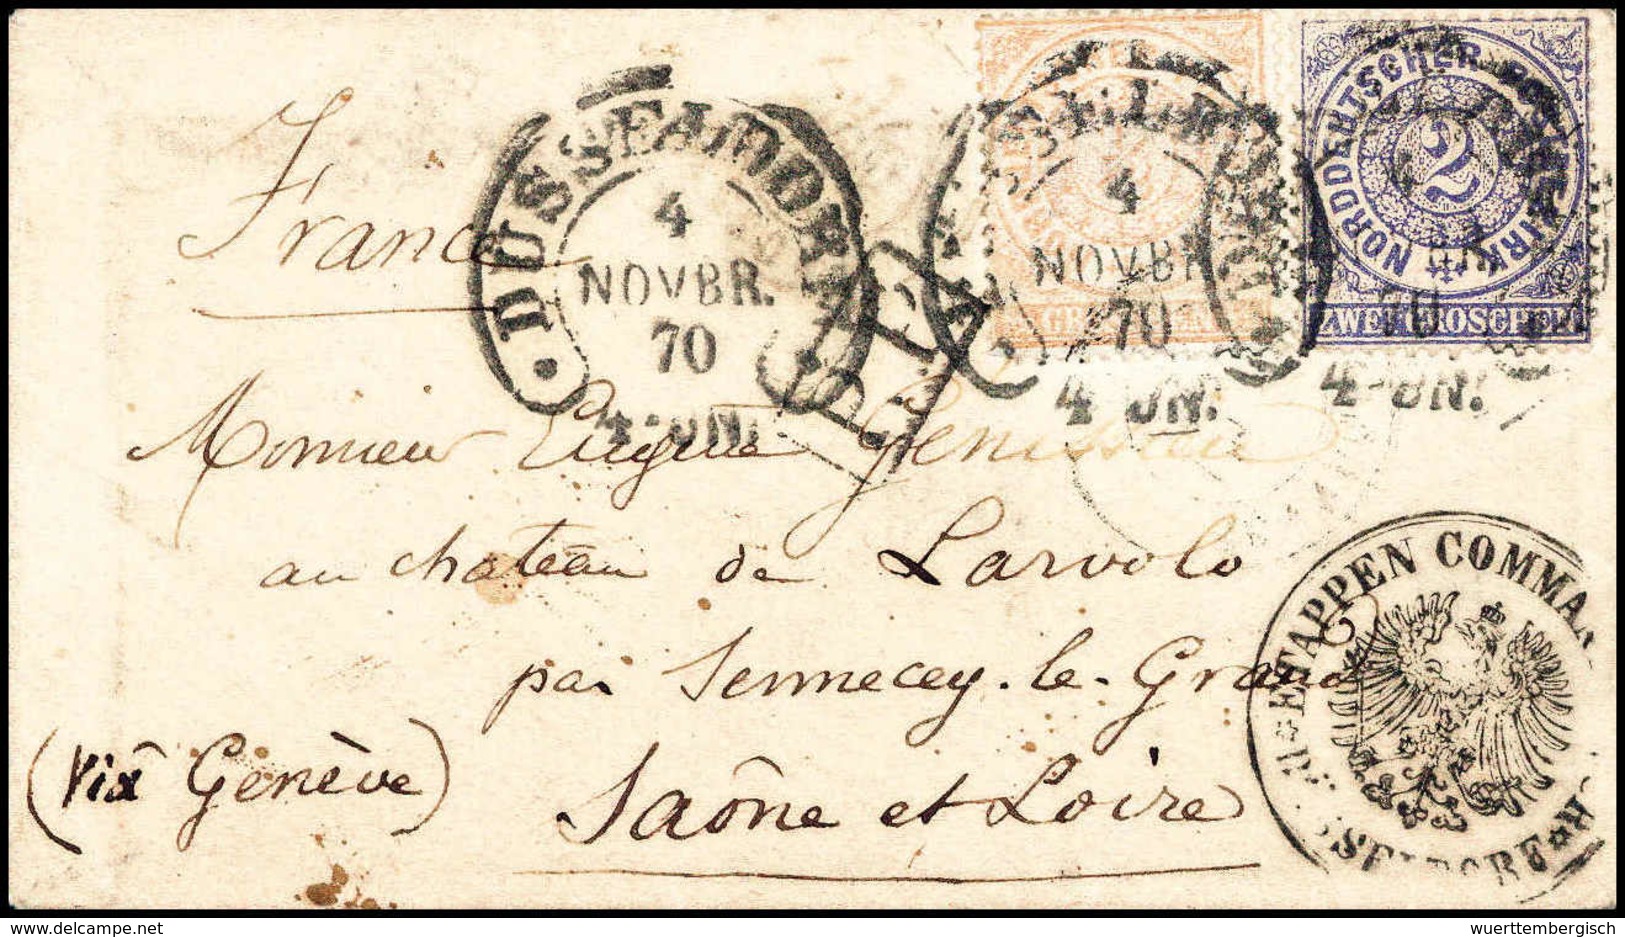 France
DUSSELDORF
4
NOVBR.
70
4-5N.
4
NOVBR
70
4-5N.
NORDDEUTSCHER POSTBEZIRK
2
ZWEI GROSCHEN
70
4-5N.
Monsieur Eugène Genisseau
au chateau de Larvolo
par Sennecey-le-Grand
(Via Genève)
Saône et Loire
ETAPPEN COMMAN
wuerttembergisch